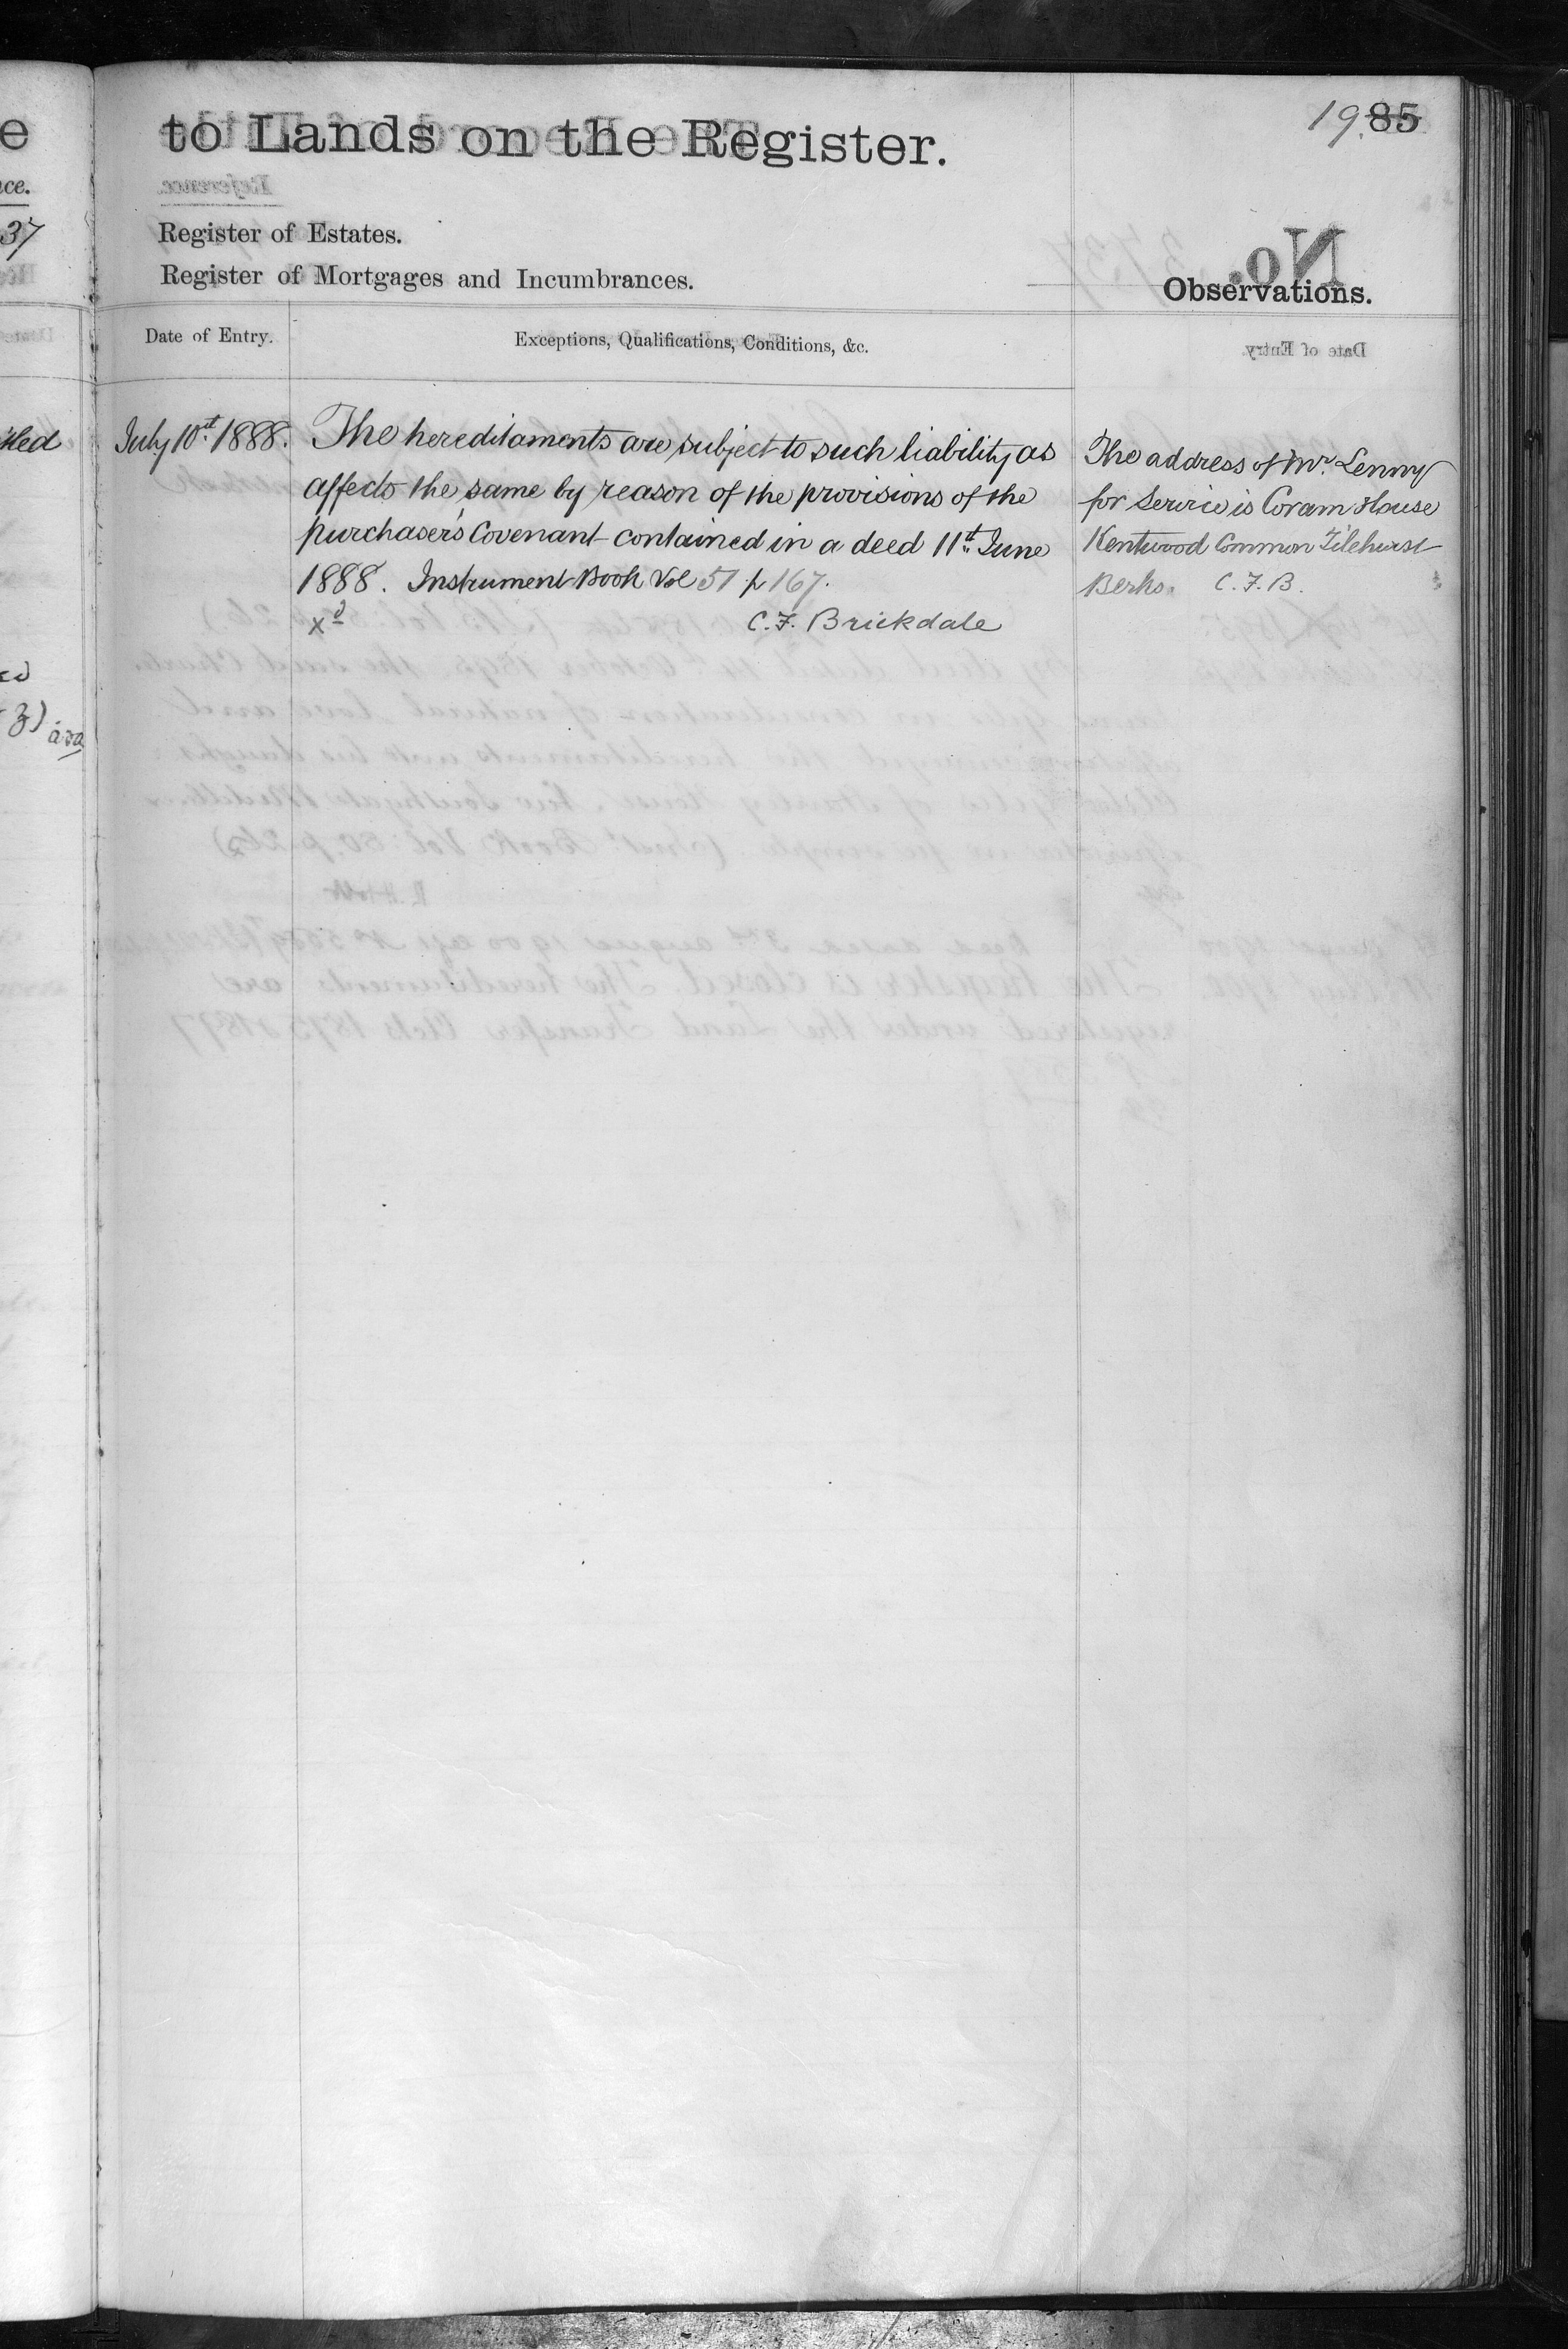 e
to Lands on the Register.
19.85
ce.
37
Register of Estates.
Register of Mortgages and Incumbrances.
Observations.
Date of Entry.
Exceptions, Qualifications, Conditions, &c.
July 10th 1888.
The hereditaments are subject to such liability as
affects the same by reason of the provisions of the
purchaser's Covenant contained in a deed 11th June
1888. Instrument Book Vol 51 p 167.
xd
C. F. Brickdale
The address of Mr. Lenny
for Service is Coram House
Kentwood Common Tilehurst
Berks. C. F. B.